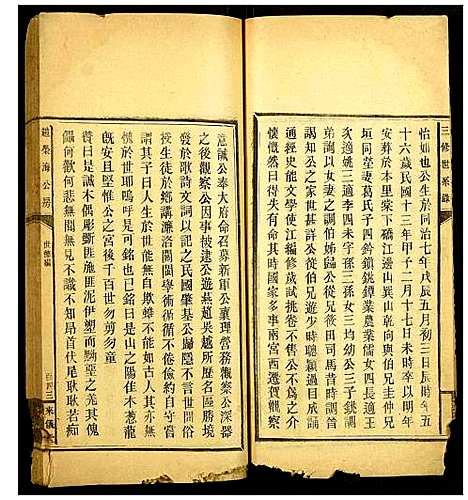 三修世系錄
怡如也公生於同治七年戊辰五月初三日辰時年五
十六歲民國十三年甲子二月十七日未時卒以明年
安葬於本里柴下礄江邊山巽山乾向與伯兄仲兄
垣同塋妻葛氏子四鈐鎮銚鐔業農業儒女四長適王
次適姚三適李四未字孫三孫女三均幼公三子銚調
弟詢以女妻之調伯姊歸公從兄篯田司馬昔予往視
謁知公之家世甚詳公從伯兄遊少時聰穎過人日
通經史能文學使江編修武試技不售公不為之介
懷惟然曰得失有命其時國家多事兩宮西遷賀觀察
意誠公奉大府命召募新軍公襄理營務觀察公深器
之後觀察公因事被逮公遊燕趙吳越所歷名區勝境
發於歌詩文詞以之記之民國肇基公歸隱不言世間俗
授生徒於鄉講濂洛關閩學術循循不倦儉約自守嘗
謂其子曰人生於世能無自欺雖不及如古人其亦無
愧於世耶嗚呼可以銘已銘曰是山之陽佳木葱瀧
既安且堅惟公之宮後千百世勿剪勿童
贊曰是誠木偶彫斵匪施匪泥伊塑而黝堊之羌其傀
儡歟何悲無聞無見不識不知昂首伏尼耿耿若痴
趙榮海公房
世德編
百四三
來儀